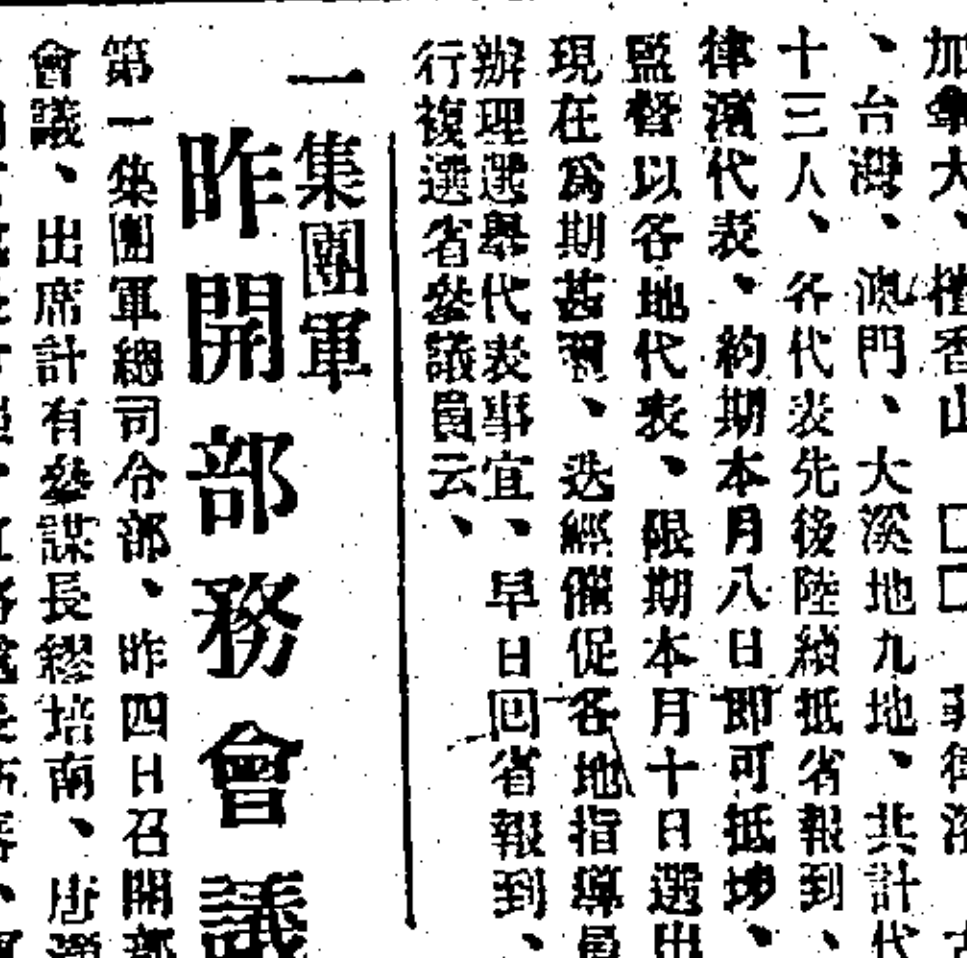 加拿大、檀香山 □□ 菲律濱 古
、台灣、澳門、大溪地九地、共計代
十三人、各代表先後陸續抵省報到、
律濱代表、約期本月八日即可抵埗、
監督以各地代表、限期本月十日選出
現在爲期甚邇、迭經催促各地指導員
辦理選舉代表事宜、早日回省報到、
行複選省參議員云、
一集團軍
昨開部務會議
第一集團軍總司令部、昨四日召開部
會議、出席計有參謀長繆培南、唐灝